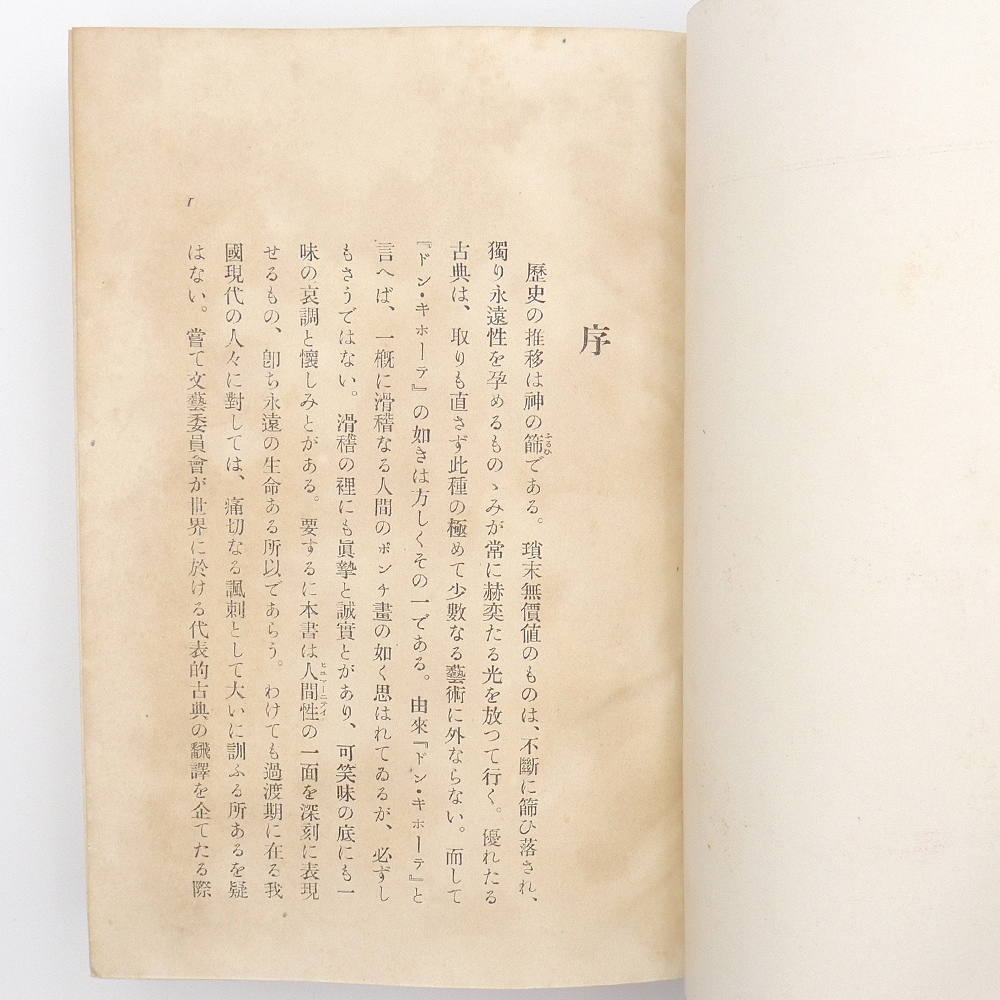 序
歷史の推移は神の篩である。瑣末無價値のものは、不斷に篩ひ落され、
獨り永遠性を孕めるものゝみが常に赫奕たる光を放つて行く。優れたる
古典は、取りも直さず此種の極めて少數なる藝術に外ならない。而して
『ドン・キホーテ』の如きは方しくその一である。由來『ドン・キホーテ』と
言へば、一槪に滑稽なる人間のポンチ畫の如く思はれてゐるが、必ずし
もさうではない。滑稽の裡にも眞摯と誠實とがあり、可笑味の底にも一
味の哀調と懷しみとがある。要するに本書は人間性の一面を深刻に表現
せるもの、卽ち永遠の生命ある所以であらう。わけても過渡期に在る我
國現代の人々に對しては、痛切なる諷刺として大いに訓ふる所あるを疑
はない。嘗て文藝委員會が世界に於ける代表的古典の飜譯を企てたる際
ふるひ
ヒユマーニテイ
1